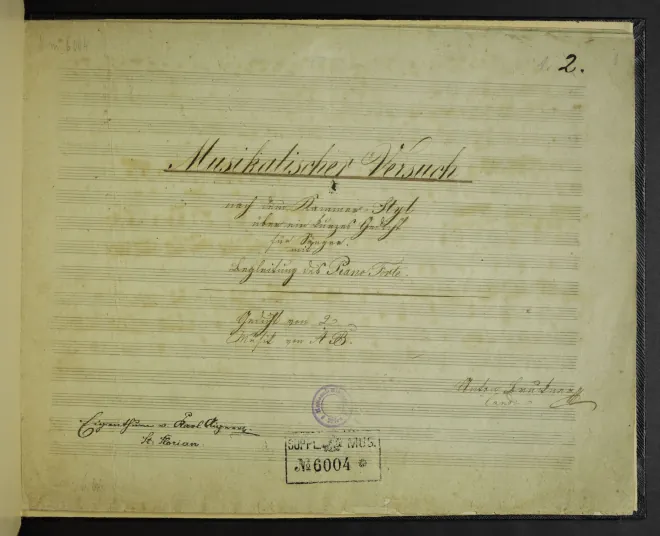 2.
Musikalischer Versuch
nach dem Kammer-Styl
über ein kurzes Gedicht
für Sänger.
mit
Begleitung des Piano-Forte.
Gedicht von
Musik von A B.
Anton Bruckner
Eigenthum v. Karl
St. Florian.
SUPPL. MUS.
№ 6004